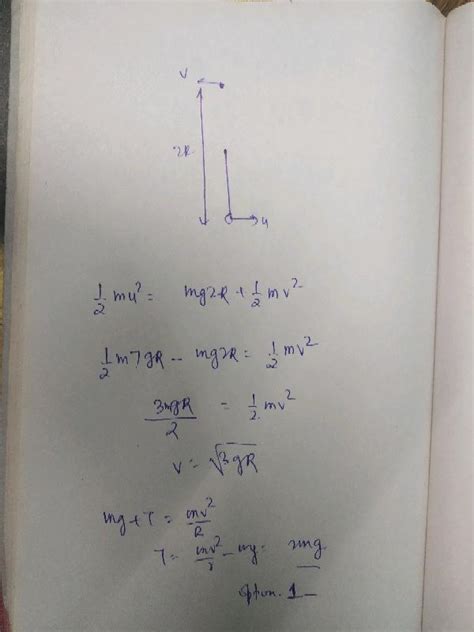 v
2R
u
1/2 mu² = mg2R + 1/2 mv²
1/2 m7gR - mg2R = 1/2 mv²
3mgR/2 = 1/2 mv²
v = √3gR
mg + T = mv²/R
T = mv²/r - mg = 2mg
option. 1